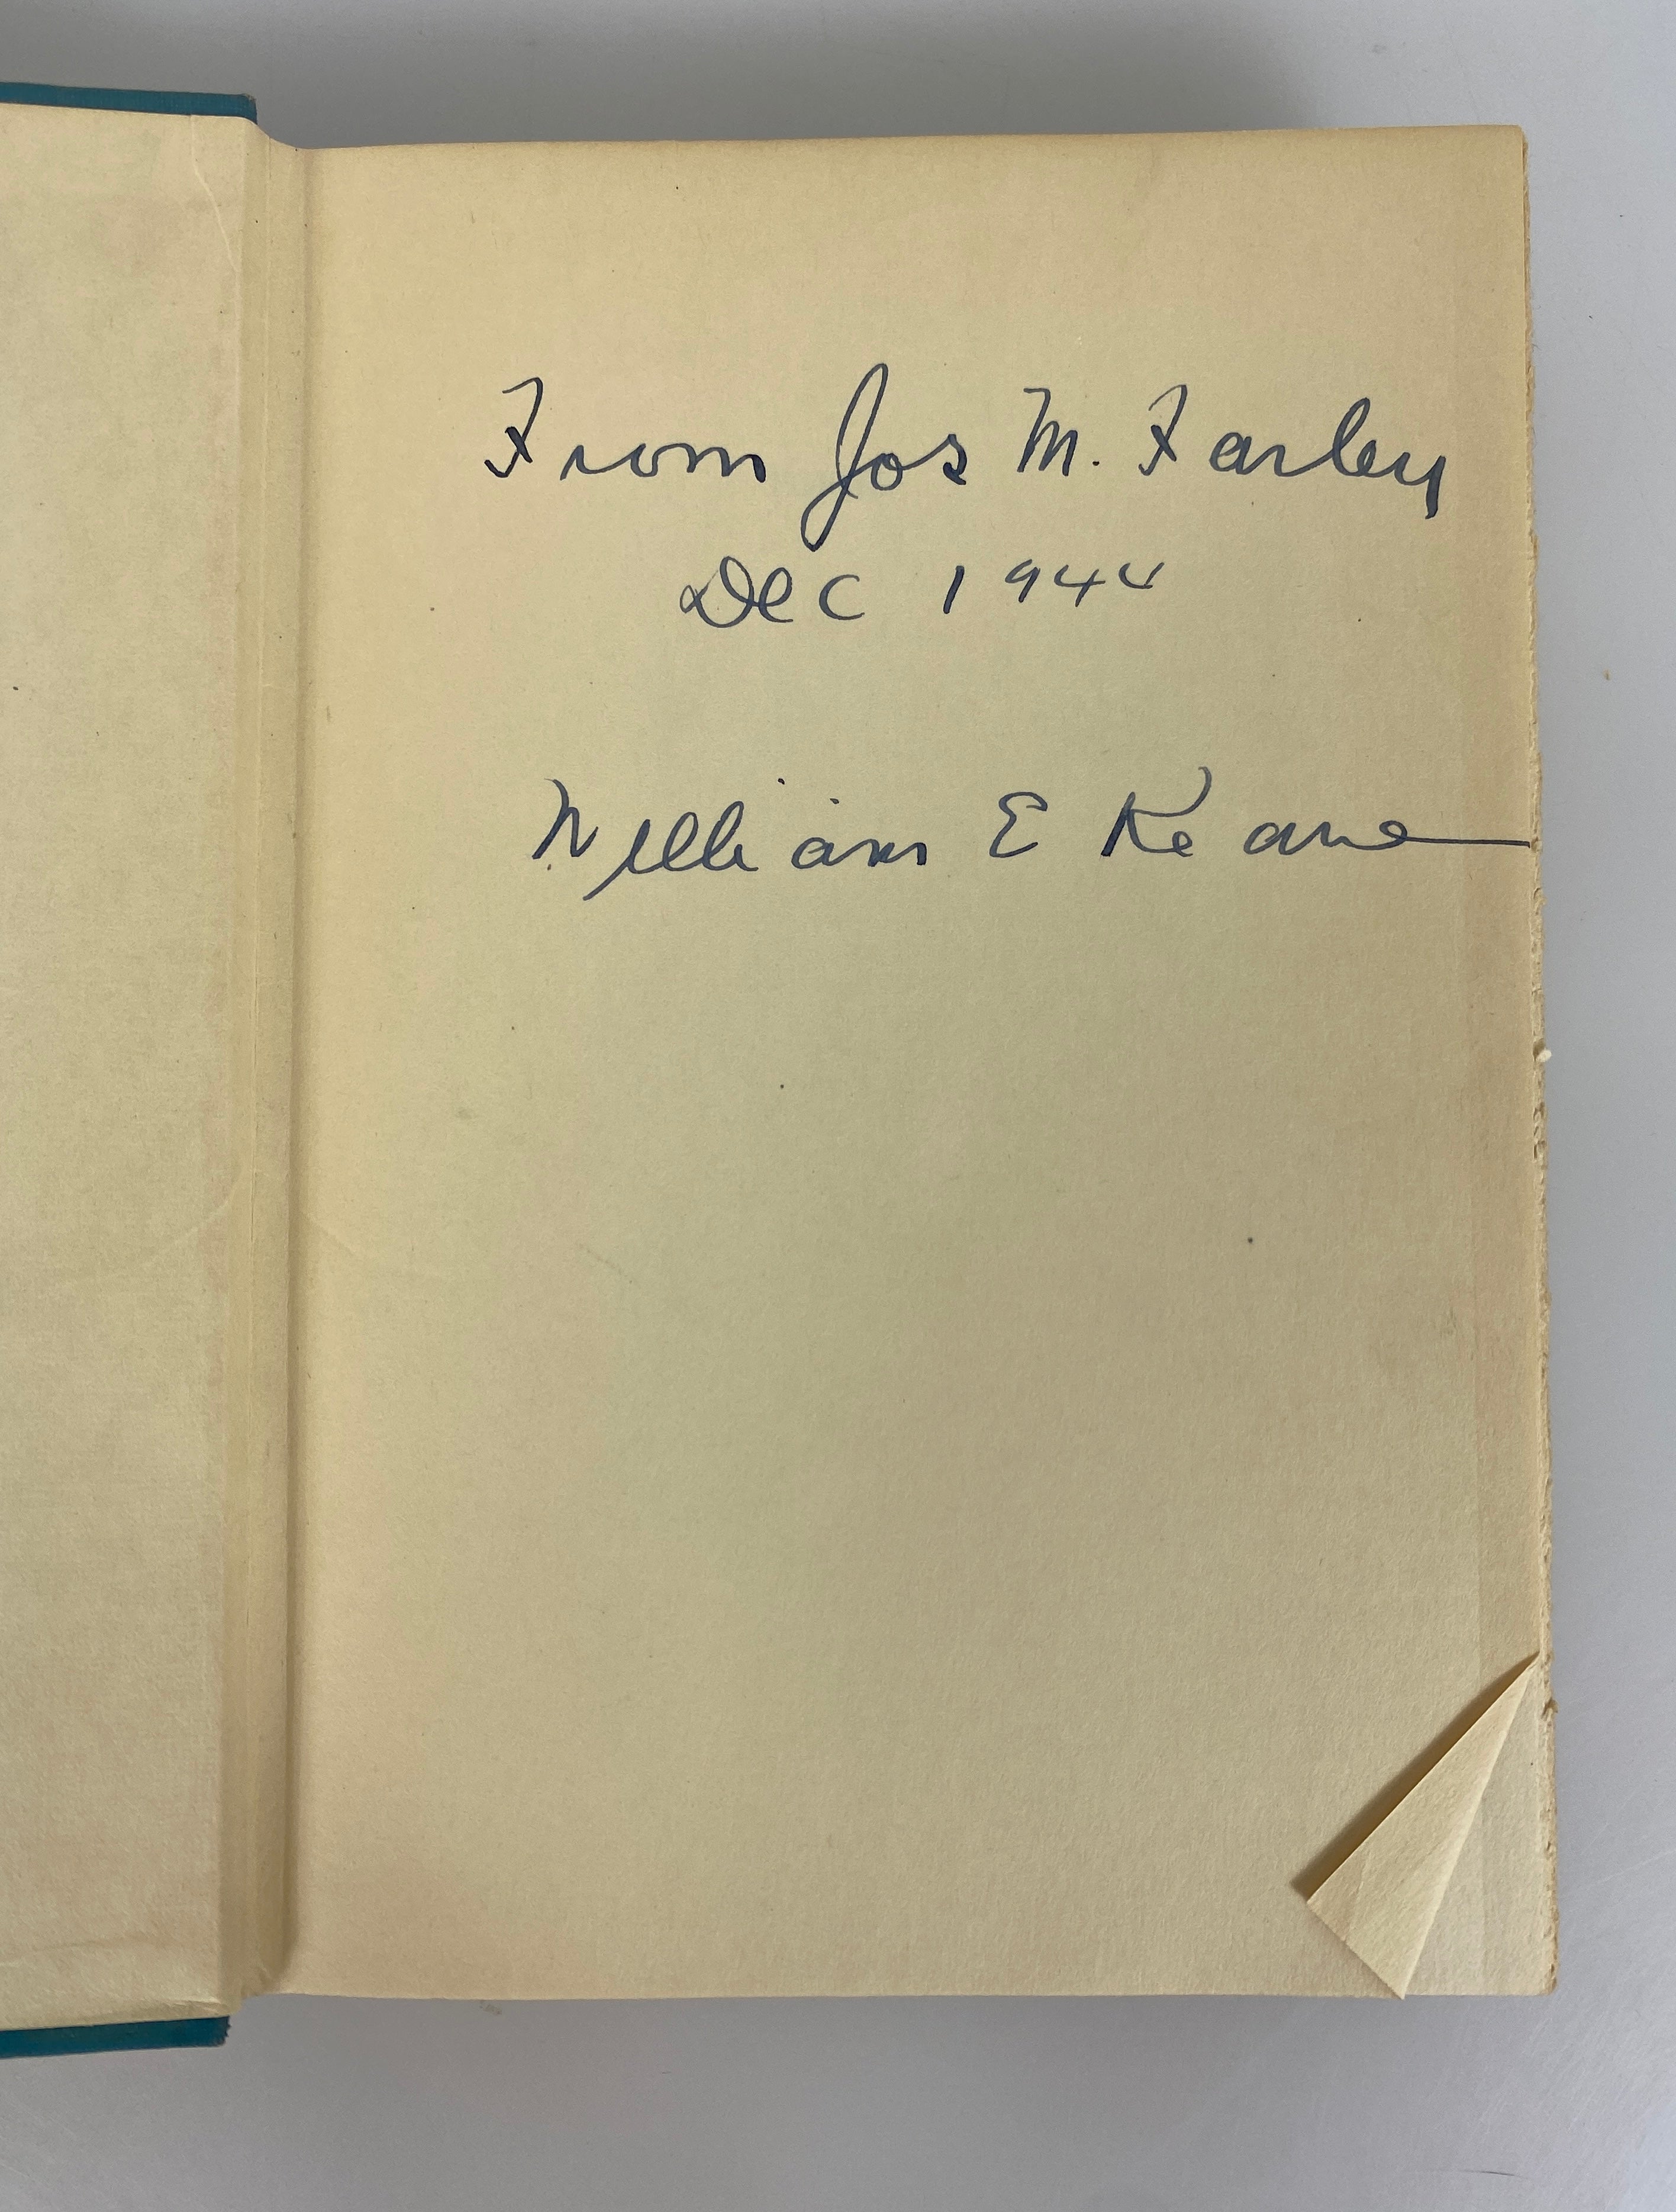 From Jos M. Farley
Dec 1944
William E Keane